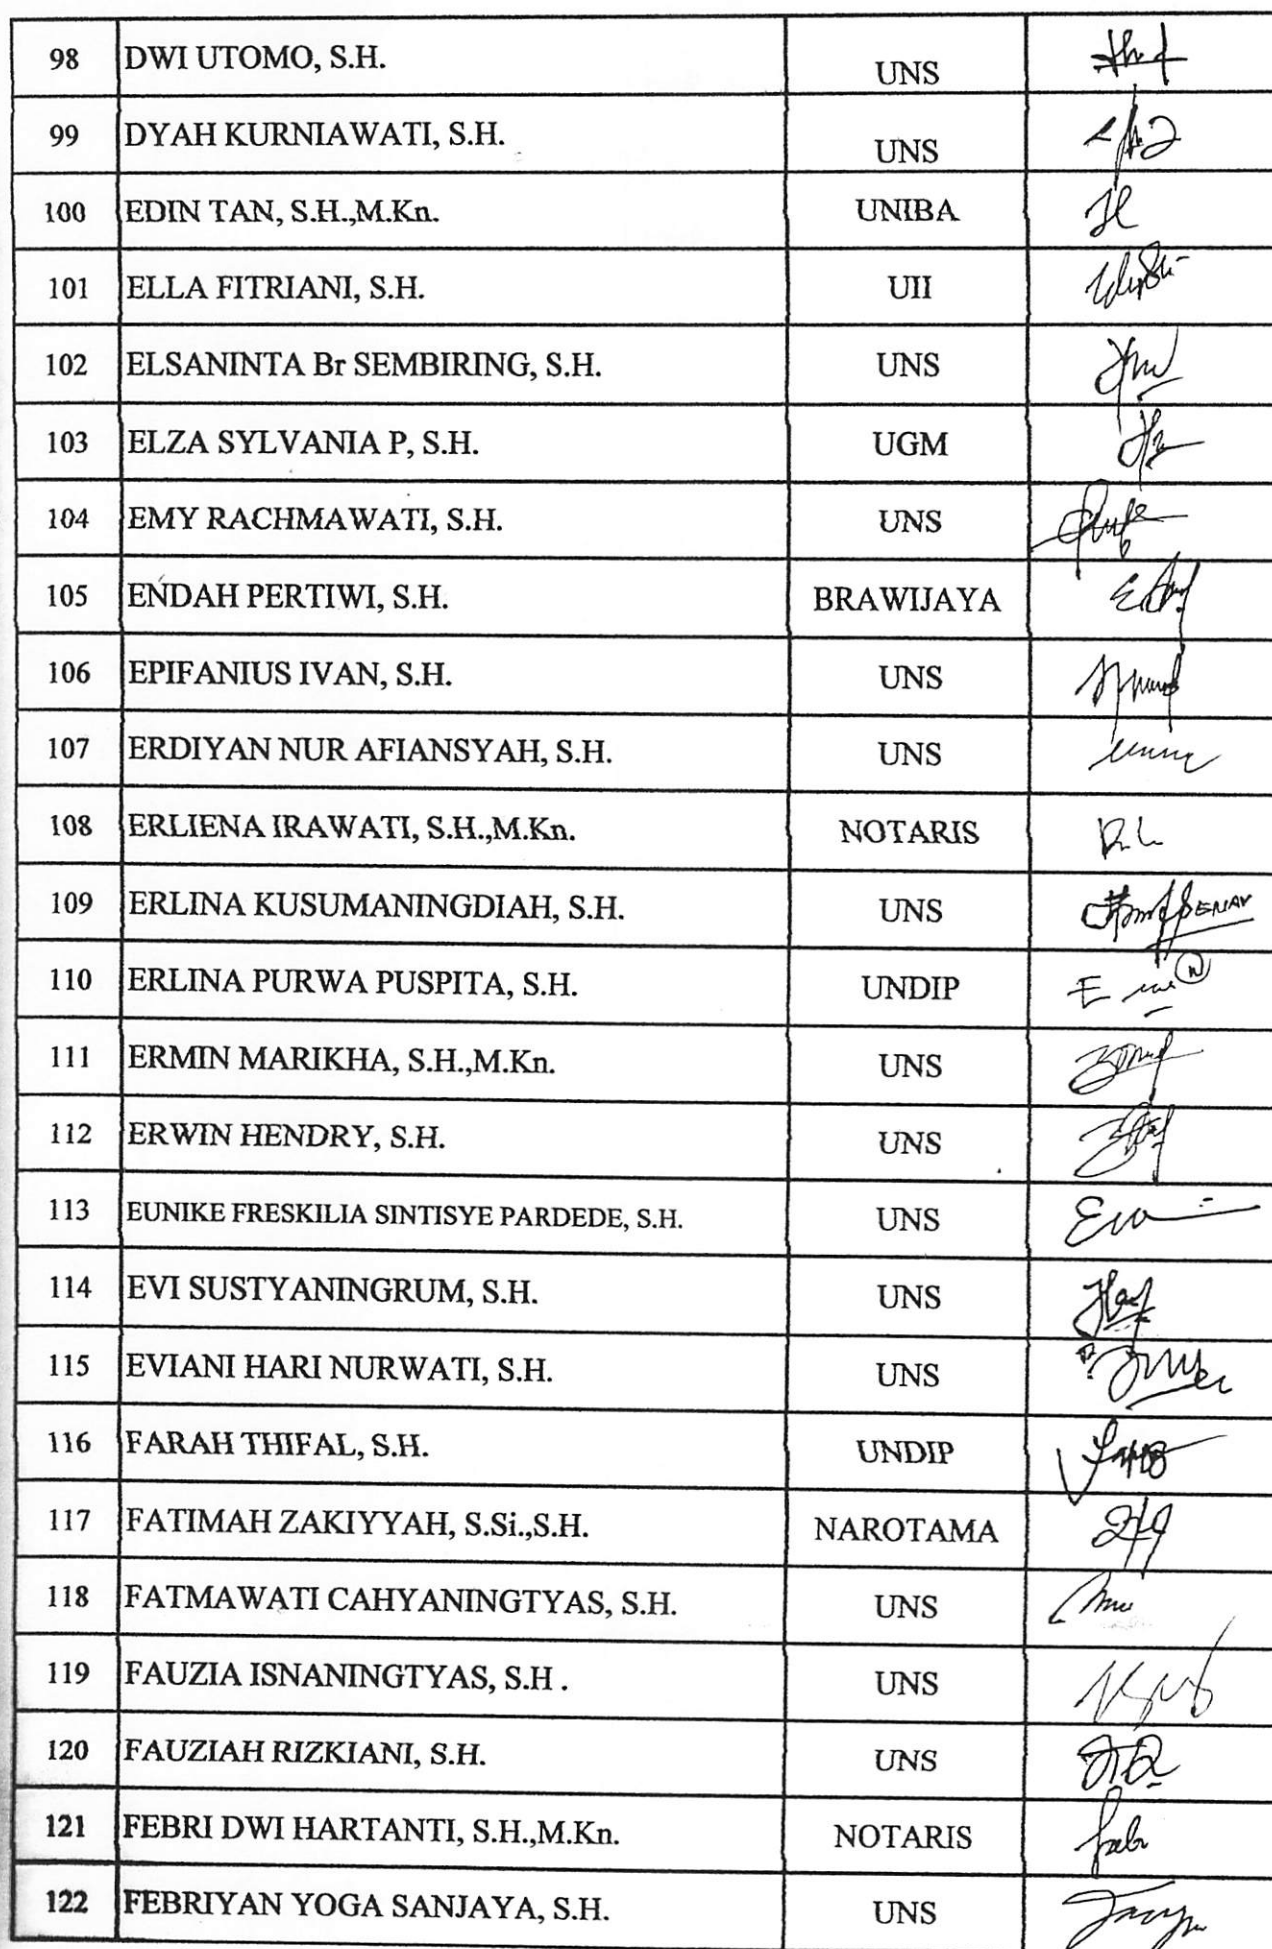 98 DWI UTOMO, S.H. UNS
99 DYAH KURNIAWATI, S.H. UNS
100 EDIN TAN, S.H.,M.Kn. UNIBA
101 ELLA FITRIANI, S.H. UII
102 ELSANINTA Br SEMBIRING, S.H. UNS
103 ELZA SYLVANIA P, S.H. UGM
104 EMY RACHMAWATI, S.H. UNS
105 ENDAH PERTIWI, S.H. BRAWIJAYA
106 EPIFANIUS IVAN, S.H. UNS
107 ERDIYAN NUR AFIANSYAH, S.H. UNS
108 ERLIENA IRAWATI, S.H.,M.Kn. NOTARIS
109 ERLINA KUSUMANINGDIAH, S.H. UNS
110 ERLINA PURWA PUSPITA, S.H. UNDIP
111 ERMIN MARIKHA, S.H.,M.Kn. UNS
112 ERWIN HENDRY, S.H. UNS
113 EUNIKE FRESKILIA SINTISYE PARDEDE, S.H. UNS
114 EVI SUSTYANINGRUM, S.H. UNS
115 EVIANI HARI NURWATI, S.H. UNS
116 FARAH THIFAL, S.H. UNDIP
117 FATIMAH ZAKIYYAH, S.Si.,S.H. NAROTAMA
118 FATMAWATI CAHYANINGTYAS, S.H. UNS
119 FAUZIA ISNANINGTYAS, S.H . UNS
120 FAUZIAH RIZKIANI, S.H. UNS
121 FEBRI DWI HARTANTI, S.H.,M.Kn. NOTARIS
122 FEBRIYAN YOGA SANJAYA, S.H. UNS